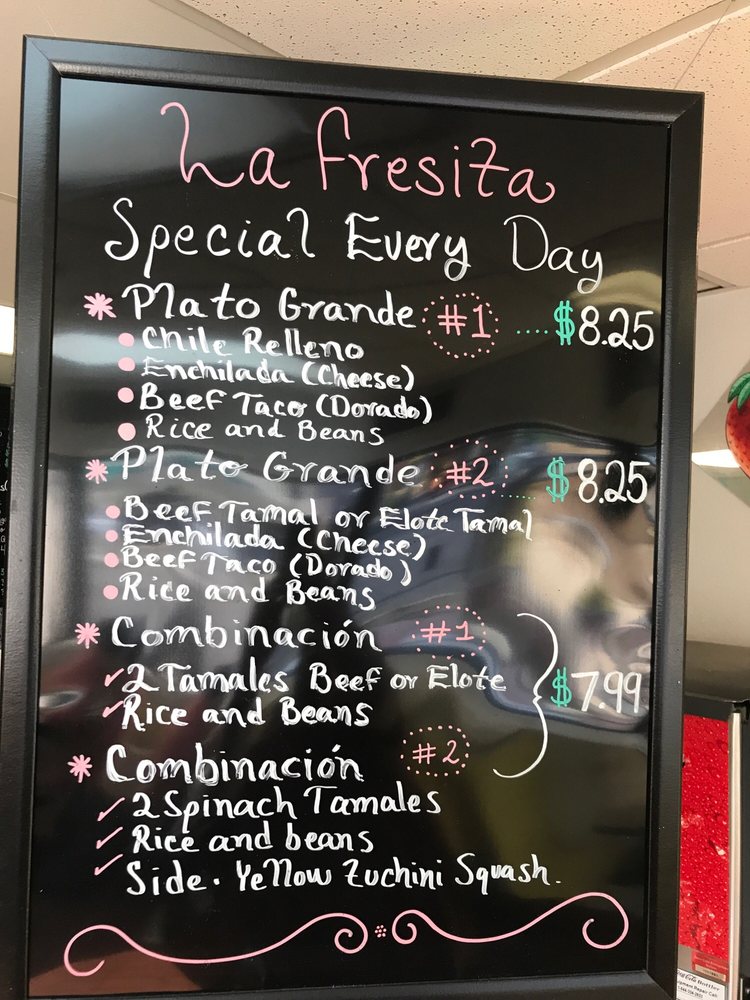 La Fresita
Special Every Day
* Plato Grande #1 .... $8.25
• Chile Relleno
• Enchilada (Cheese)
• Beef Taco (Dorado)
• Rice and Beans
* Plato Grande #2 .... $8.25
• Beef Tamal or Elote Tamal
• Enchilada (Cheese)
• Beef Taco (Dorado)
• Rice and Beans
* Combinación #1
✓ 2 Tamales Beef or Elote
$7.99
✓ Rice and Beans
* Combinación #2
✓ 2 Spinach Tamales
✓ Rice and beans
✓ Side. Yellow Zuchini Squash.